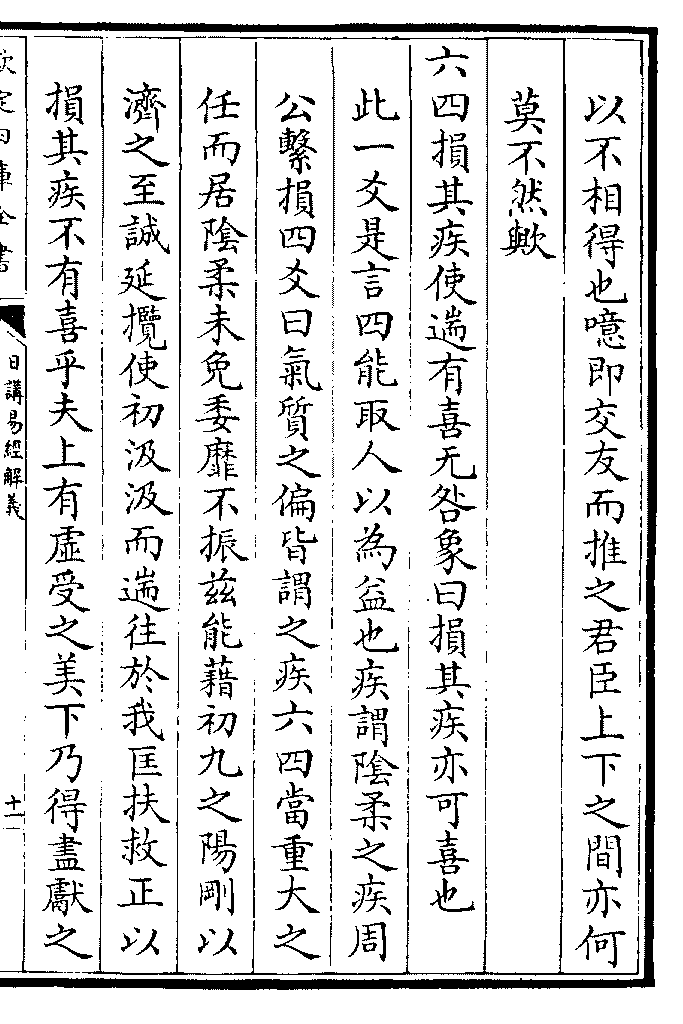 以不相得也噫即交友而推之君臣上下之間亦何
莫不然歟
六四損其疾使遄有喜无咎象曰損其疾亦可喜也
此一爻是言四能取人以為益也疾謂陰柔之疾周
公繫損四爻曰氣質之偏皆謂之疾六四當重大之
任而居陰柔未免委靡不振兹能藉初九之陽剛以
濟之至誠延攬使初汲汲而遄往於我匡扶救正以
損其疾不有喜乎夫上有虛受之美下乃得盡獻之
欽定四庫全書
日講易經解義
十一